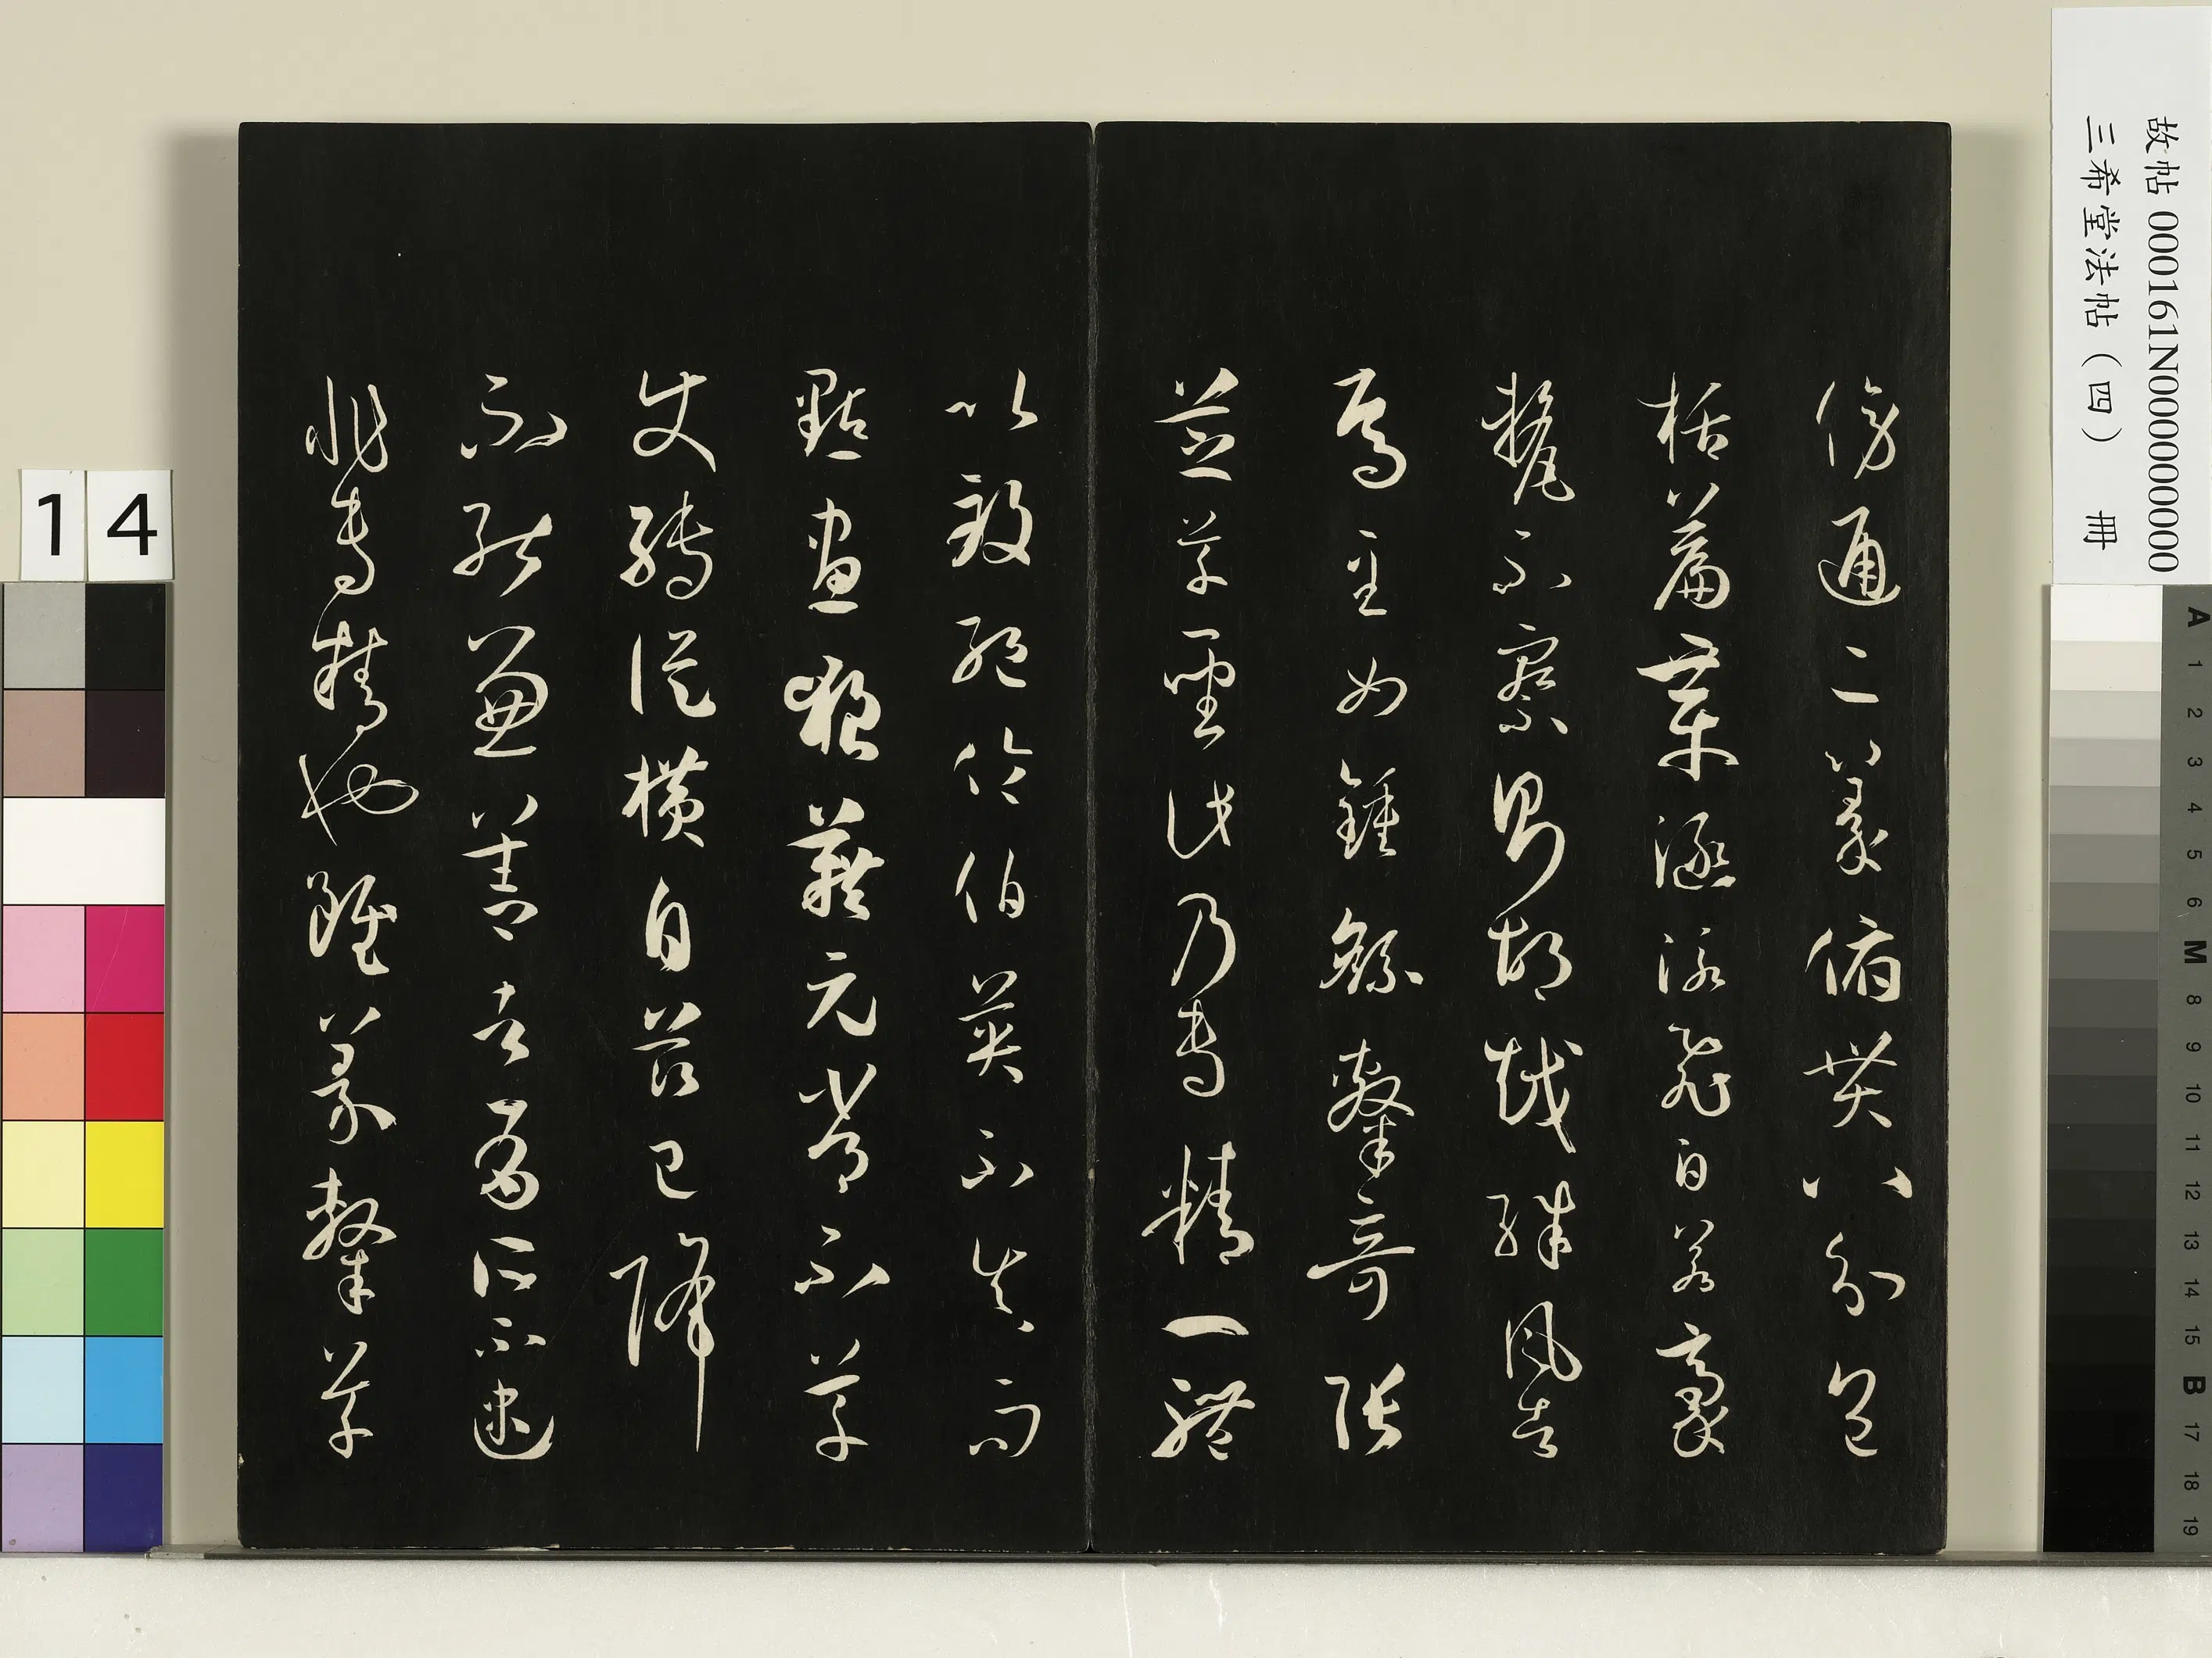 傍通二篆俯貫八分包
括篇章涵泳飛白若豪
氂不察則胡越殊風者
焉至如鍾繇隸奇張
芝草聖此乃專精一體
以致絕倫伯英不真而
點畫狼藉元常不草
使轉縱橫自茲已降
不能兼善者有所不逮
非專精也雖篆隸草
故帖 000161N000000000
三希堂法帖（四） 冊
14
A 1 2 3 4 5 6 M 8 9 10 11 12 13 14 15 B 17 18 19